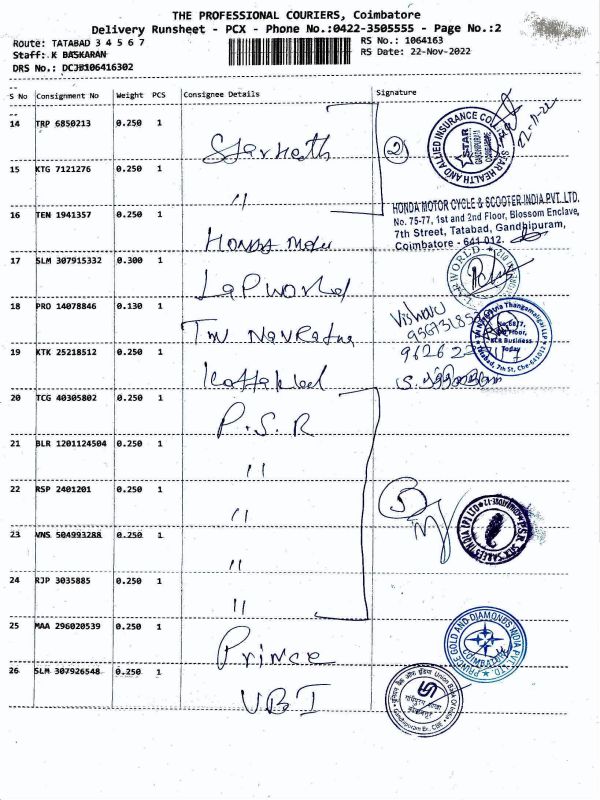 THE PROFESSIONAL COURIERS, Coimbatore
Delivery Runsheet - PCX - Phone No.:0422-3505555 - Page No.:2
Route: TATABAD 3 4 5 6 7
RS No.: 1064163
Staff: K BASKARAN
RS Date: 22-Nov-2022
DRS No.: DCJB106416302
S No Consignment No Weight PCS Consignee Details Signature
14 TRP 6850213 0.250 1
2
STAR HEALTH AND ALLIED INSURANCE CO
STAR
22-11-22
15 KTG 7121276 0.250 1 "
16 TEN 1941357 0.250 1 Honda Motu
HONDA MOTOR CYCLE & SCOOTER INDIA PVT. LTD.
No. 75-77, 1st and 2nd Floor, Blossom Enclave,
7th Street, Tatabad, Gandhipuram,
Coimbatore - 641 012.
17 SLM 307915332 0.300 1 Lapworld
WORLD
18 PRO 14078846 0.130 1 Tmv Navratna
Vishnu
Thangamaligai LLP
Tatabad, 7th St, Cbe-641012
19 KTK 25218512 0.250 1
20 TCG 40305802 0.250 1 P.S.R
21 BLR 1201124504 0.250 1 "
22 RSP 2401201 0.250 1 "
5
P.S.R. SILK SAREES INDIA (P) LTD
23 VNS 504993288 0.250 1 "
24 RJP 3035885 0.250 1 "
25 MAA 296020539 0.250 1 Prince
PRINCE GOLD AND DIAMONDS INDIA PVT. LTD.
COIMBATORE
26 SLM 307926548 0.250 1 UBI
Union Bank Of India
Gandhipuram Br., CBE